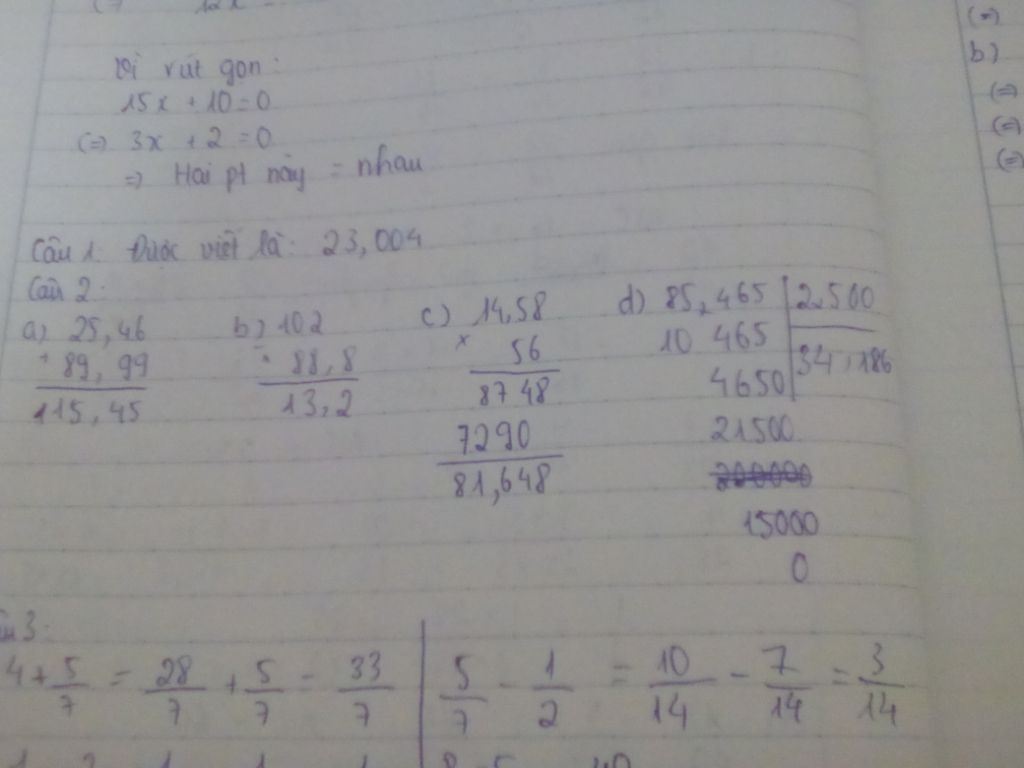 12x
Vì rút gọn:
15x + 10 = 0
(=) 3x + 2 = 0
=> Hai pt này = nhau
Câu 1: Được viết là: 23,004
Câu 2:
a) 25,46
+ 89,99
115,45
b) 102
- 88,8
13,2
c) 14,58
x 56
8748
7290
81,648
d) 85,465 | 2,500
10 465 | 34,186
4650
21500
15000
0
3:
4 + 5/7 = 28/7 + 5/7 = 33/7
5/7 - 1/2 = 10/14 - 7/14 = 3/14
(=)
b)
(=)
(=)
(=)